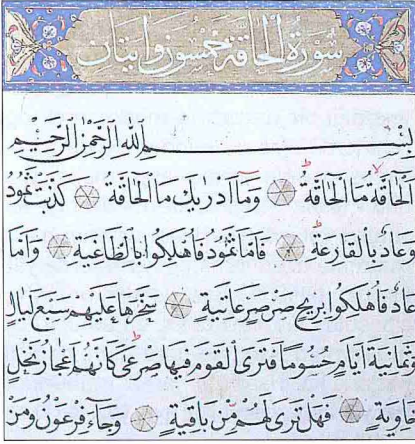 سُورَةُ الْحَاقَّةِ خَمْسُونَ وَاٰيَتَانِ
بِسْمِ اللّٰهِ الرَّحْمٰنِ الرَّحِيمِ
اَلْحَاقَّةُ مَا الْحَاقَّةُ وَمَا اَدْرٰيكَ مَا الْحَاقَّةُ كَذَّبَتْ ثَمُودُ
وَعَادٌ بِالْقَارِعَةِ فَاَمَّا ثَمُودُ فَاُهْلِكُوا بِالطَّاغِيَةِ وَاَمَّا
عَادٌ فَاُهْلِكُوا بِرِيحٍ صَرْصَرٍ عَاتِيَةٍ سَخَّرَهَا عَلَيْهِمْ سَبْعَ لَيَالٍ
وَثَمَانِيَةَ اَيَّامٍ حُسُومًا فَتَرَى الْقَوْمَ فِيهَا صَرْعٰى كَاَنَّهُمْ اَعْجَازُ نَخْلٍ
خَاوِيَةٍ فَهَلْ تَرٰى لَهُمْ مِنْ بَاقِيَةٍ وَجَاءَ فِرْعَوْنُ وَمَنْ